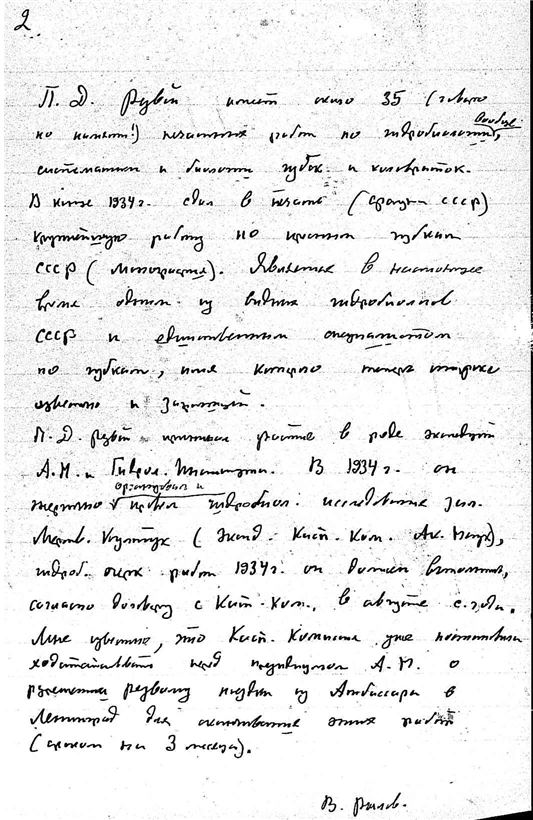 2
П. Д. Резвой имеет около 35 (точно
не помнит!) печатных работ по гидробиологии, вообще
систематики и биологии губок и коловраток.
В конце 1934 г. сдал в печать (Фауна СССР)
крупнейшую работу по пресным губкам
СССР (монография). Является в настоящее
время одним из видных гидробиологов
СССР и единственным специалистом
по губкам, имя которого теперь широко
известно и заграницей.
П. Д. Резвой принимал участие в ряде экспедиций
А.Н. и Гидрол. Института. В 1934 г. он
организовал и
провел гидробиол. исследования зал.
Мертв. Култук (Эксп. Касп. Ком. Ак. Наук),
гидроб. очерк работ 1934 г. он должен выполнить,
согласно договору с Касп. Ком., в августе с. года.
Мне известно, что Касп. Комиссия уже
ходатайствовать перед президиумом А.Н. о
разрешении Резвому поездки из Атбасара в
Ленинград для оканчивания этих работ
(сроком на 3 месяца).
В. Рылов.